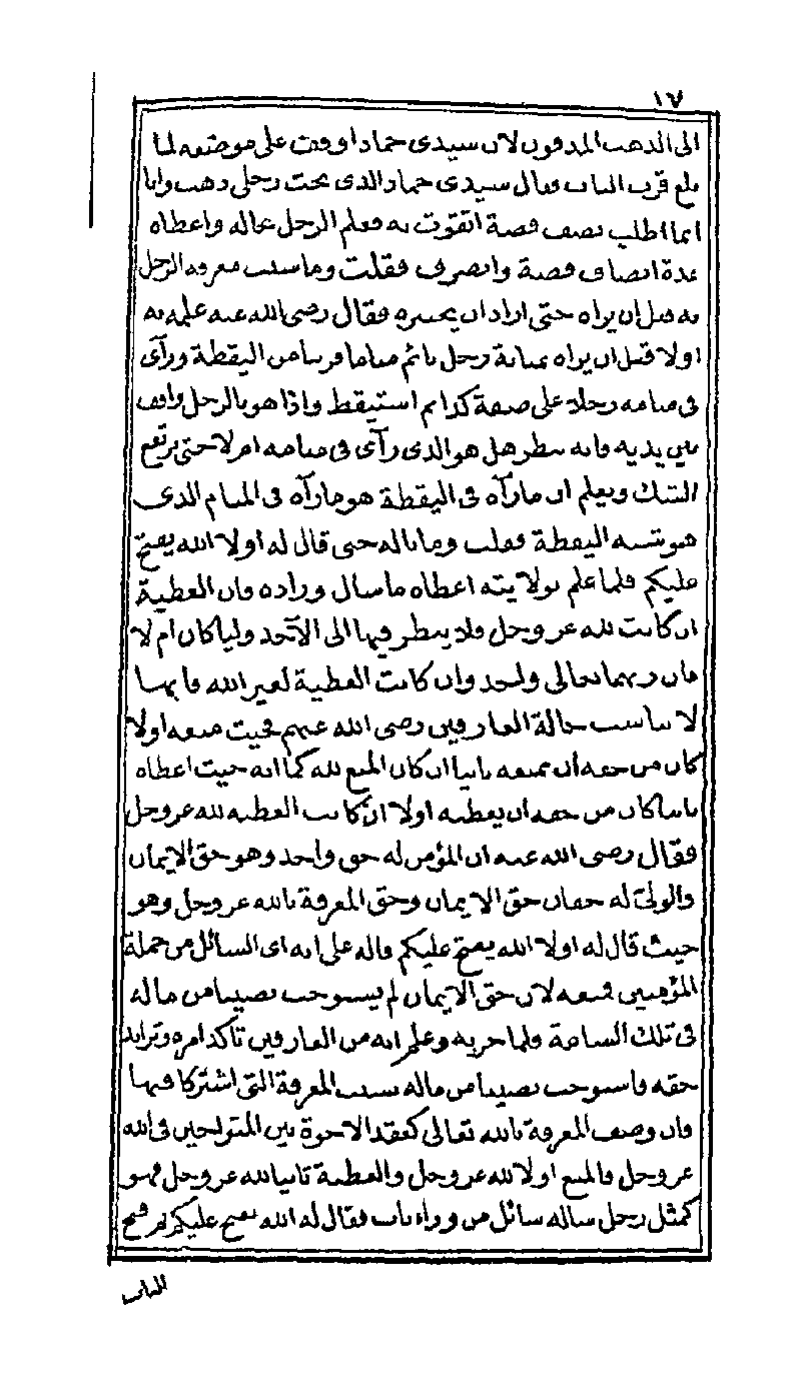 ١٧
الى الذهب المدفون لان سيدى حماد اوقف على موضعه لما
بلغ قرب الباب فقال سيدى حماد الذى تحت رجلى ذهب وانا
انما اطلب نصف فضة اتقوت به فعلم الرجل بحاله واعطاه
عدة انصاف فضة وانصرف فقلت وما سبب معرفة الرجل
به قبل ان يراه حتى اراد ان يختبره فقال رضى الله عنه علمه به
اولا قبل ان يراه بمثابة رجل نائم مناما قريبا من اليقظة ورأى
فى منامه رجلا على صفة كذا ثم استيقظ واذا هو بالرجل واقف
بين يديه فانه ينظر هل هو الذى رآى فى منامه ام لا حتى يرتفع
الشك ويعلم ان مارآه فى اليقظة هو مارآه فى المنام الذى
هو تشبه اليقظة فقلت وما باله حتى قال له اولا الله يفتح
عليكم فلما علم بولايته اعطاه ماسال وزاده فان العطية
ان كانت لله عز وجل فلا ينظر فيها الى الآخذ وليا كان ام لا
فان ربهما تعالى واحد وان كانت العطية لغير الله فانها
لا تناسب حالة العارفين رضى الله عنهم فحيث منعه اولا
كان من حقه ان يمنعه ثانيا ان كان المنع لله كما انه حيث اعطاه
ثانيا كان من حقه ان يعطيه اولا ان كانت العطية لله عز وجل
فقال رضى الله عنه ان المؤمن له حق واحد وهو حق الايمان
والولى له حقان حق الايمان وحق المعرفة بالله عز وجل وهو
حيث قال له اولا الله يفتح عليكم قاله على انه اى السائل من جملة
المؤمنين فمنعه لان حق الايمان لم يستوجب نصيبا من ماله
فى تلك الساعة فلما جربه وعلم انه من العارفين تأكد امره وتزايد
حقه فاستوجب نصيبا من ماله بسبب المعرفة التى اشتركا فيها
فان وصف المعرفة بالله تعالى كعقد الاخوة بين المتواخين فى الله
عز وجل فالمنع اولا لله عز وجل والعطية ثانيا لله عز وجل فهو
كمثل رجل ساله سائل من وراء باب فقال له الله يفتح عليكم ثم فتح
الباب